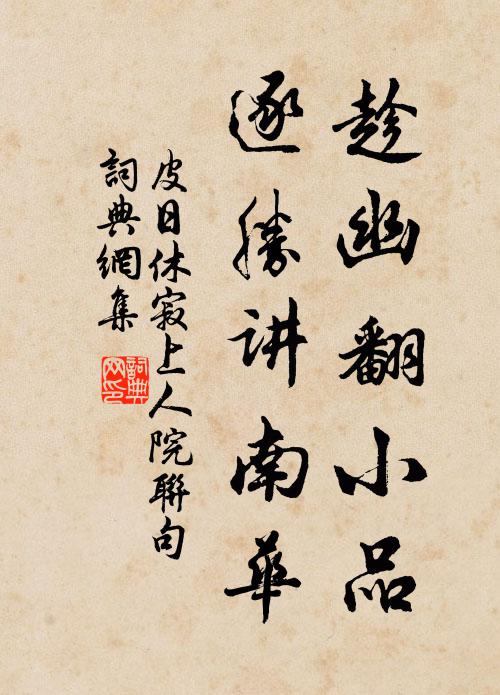 趁幽翻小品
逐勝讲南華
皮日休寂上人院聯句
詞典網集
詞典网印